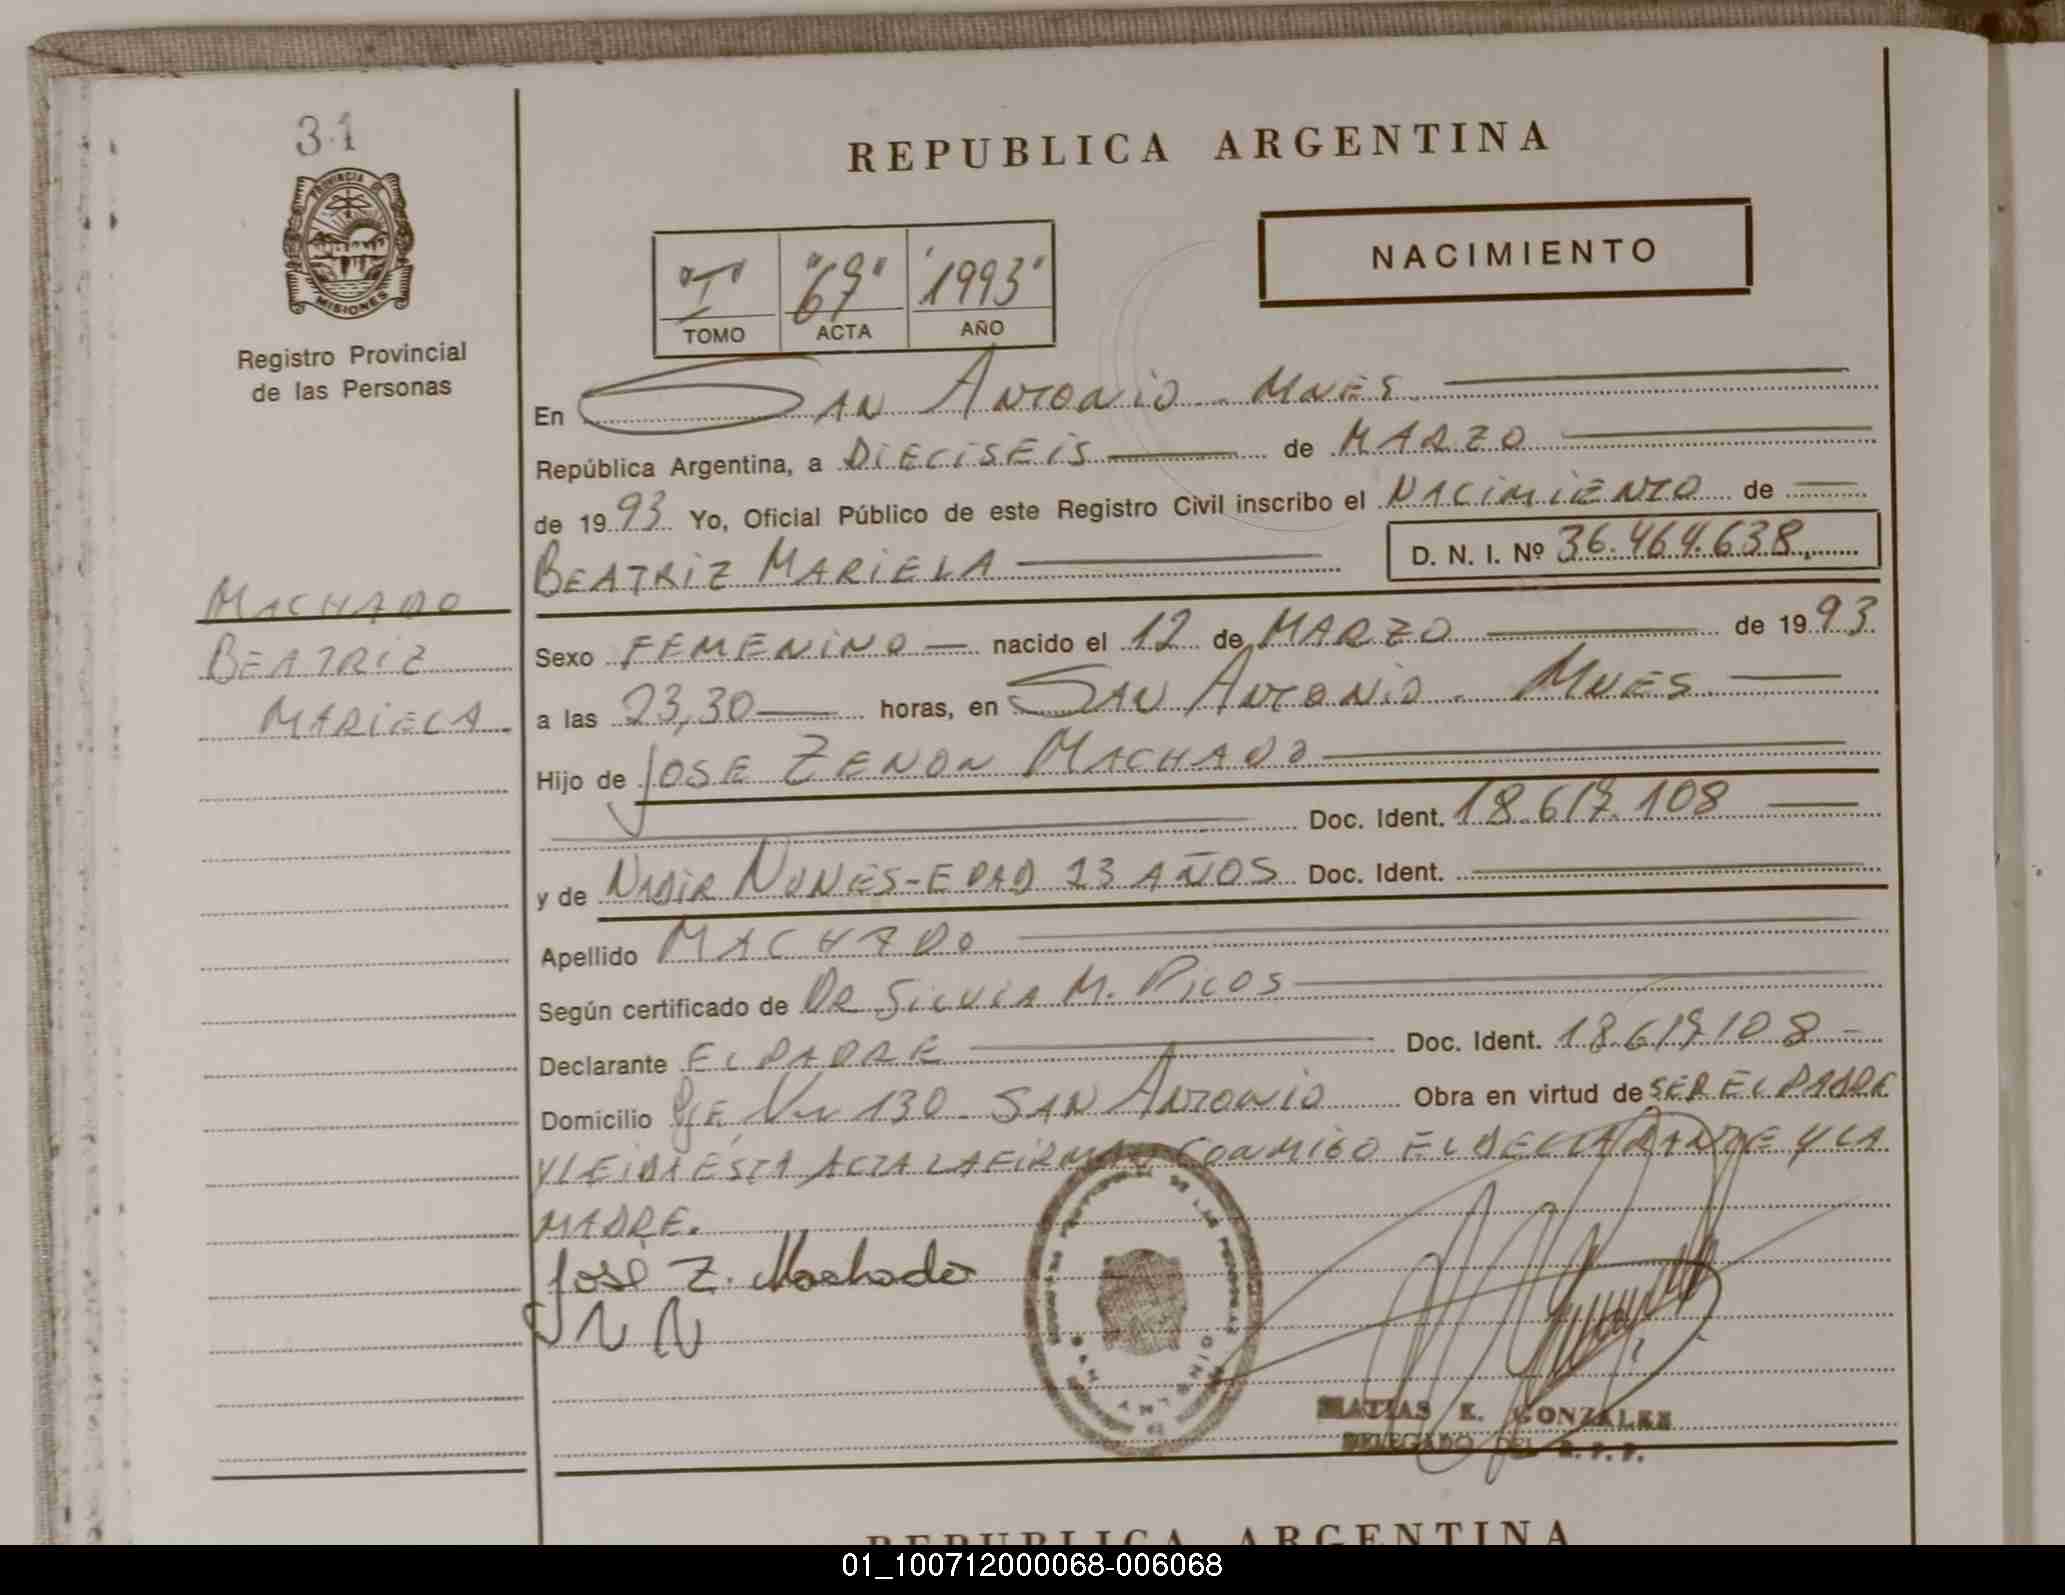 31
PROVINCIA DE
MISIONES
Registro Provincial
de las Personas
MACHADO
BEATRIZ
MARIELA
REPUBLICA ARGENTINA
NACIMIENTO
"I" "67" "1993"
TOMO ACTA AÑO
En SAN ANTONIO - MNES
República Argentina, a DIECISEIS de MARZO
de 1993 Yo, Oficial Público de este Registro Civil inscribo el NACIMIENTO de
BEATRIZ MARIELA D. N. I. Nº 36.464.638
Sexo FEMENINO nacido el 12 de MARZO de 1993
a las 23,30 horas, en SAN ANTONIO - MNES
Hijo de JOSE ZENON MACHADO
Doc. Ident. 18.617.108
y de NADIR NUNES-EDAD 23 AÑOS Doc. Ident.
Apellido MACHADO
Según certificado de DR SILVIA M. PICOS
Declarante EL PADRE Doc. Ident. 18.617108
Domicilio 130 - SAN ANTONIO Obra en virtud de SER EL PADRE
Y LEIDA ESTA ACTA LA FIRMAN CONMIGO EL DECLARANTE Y LA
MADRE.
José Z. Machado
N N
MATIAS E. GONZALEZ
DELEGADO DEL R.P.P.
REPUBLICA ARGENTINA
01_100712000068-006068